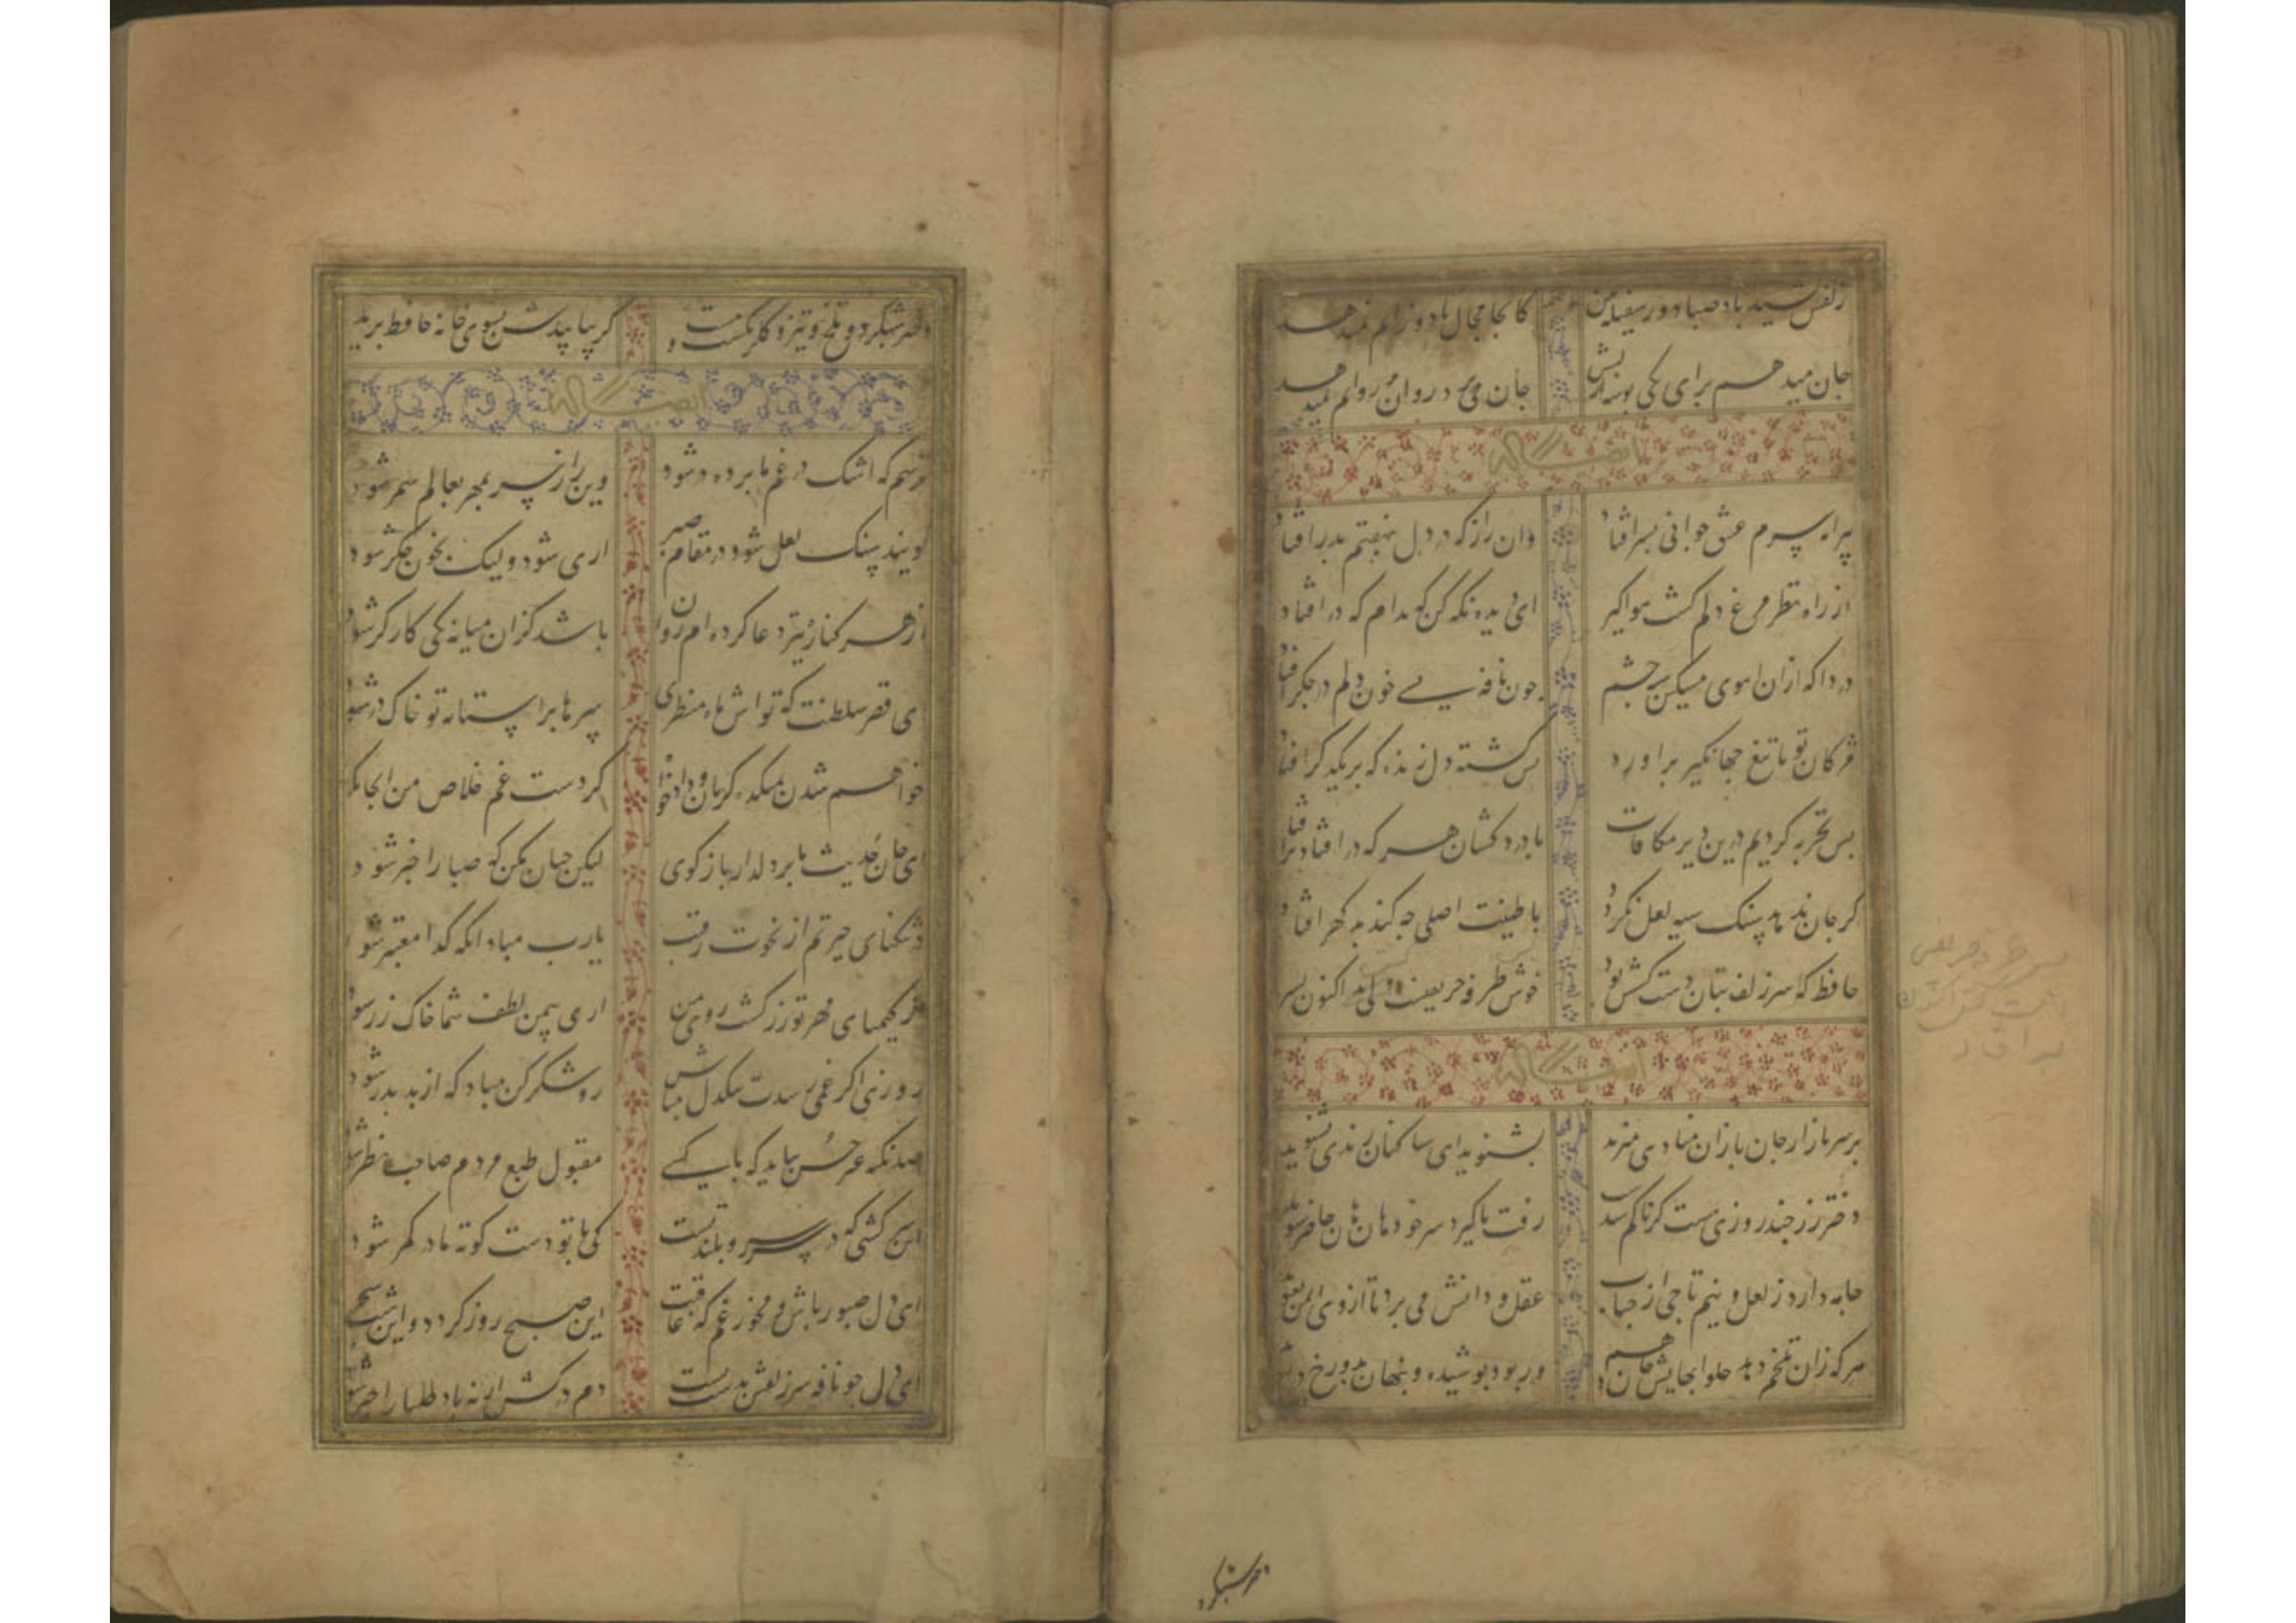 زلفش کشید باد صبا دور سفله بین کانجا مجال باد وزانم نمیدهد
جان میدهم برای یکی بوسه از لبش جان می‌ در روان روانم نمیدهد
ایضا له
پیرانه سرم عشق جوانی بسر افتاد وان راز که در دل بنهفتم بدر افتاد
از راه نظر مرغ دلم کشت هواکیر ای دیده نکه کن که بدام که در افتاد
دردا که ازان اهوی مسکین سیه چشم چون نافه بسی خون دلم در جکر افتاد
مژکان تو تا تیغ جهانکیر براورد بس کشته دل زنده که بر یکدکر افتاد
بس تجربه کردیم درین دیر مکافات با درد کشان هر که در افتاد برافتاد
کر جان بدهد سنک سیه لعل نکردد با طینت اصلی چه کند بد کهر افتاد
حافظ که سر زلف بتان دست کشش بود خوش طرفه حریفیست کش اکنون بسر
ایضا له
بر سر بازار جان بازان منادی میزنند بشنوید ای ساکنان رندی بشنوید
دختر رز چند روزی هست کز ما کم شدست رفت تا کیرد سر خود هان و هان حاضر شوید
جامه دارد ز لعل و نیم تاجی از حباب عقل و دانش می برد تا از وی ایمن نغنوید
هر که زان تلخم دهد حلوا بهایش جان دهم ور بود پوشیده و پنهان بدوزخ
دختر شبکرد
دختر شبکرد و تلخ و تیز و کلرنکست و مست کر بیابیدش بسوی خانه حافظ برید
ایضا له
ترسم که اشک در غم ما پرده در شود وین راز سر بمهر بعالم سمر شود
کویند سنک لعل شود در مقام صبر اری شود ولیک بخون جکر شود
از هر کناره تیر دعا کرده ام روان باشد کزان میانه یکی کارکر شود
ای قصر سلطنت که تواش ماه منظری سرها بر استانه تو خاک در شود
خواهم شدن بمیکده کریان و دادخواه کز دست غم خلاص من انجا مکر
ای جان حدیث ما بر دلدار باز کوی لیکن چنان مکن که صبا را خبر شود
در تنکنای حیرتم از نخوت رقیب یارب مباد انکه کدا معتبر شود
از کیمیای مهر تو زر کشت روی من اری بیمن لطف شما خاک زر شود
روزی اکر غمی رسدت تنکدل مباش رو شکر کن مباد که از بد بتر شود
صد نکته غیر حسن بباید که تا کسی مقبول طبع مردم صاحب نظر شود
این سرکشی که در سر سرو بلند تست کی با تو دست کوته ما در کمر شود
ای دل صبور باش و مخور غم که عاقبت این صبح روز کردد و این شب سحر
ای دل چو نافه سر زلفش بدست تست دم درکش ار نه باد صبا را خبر شود